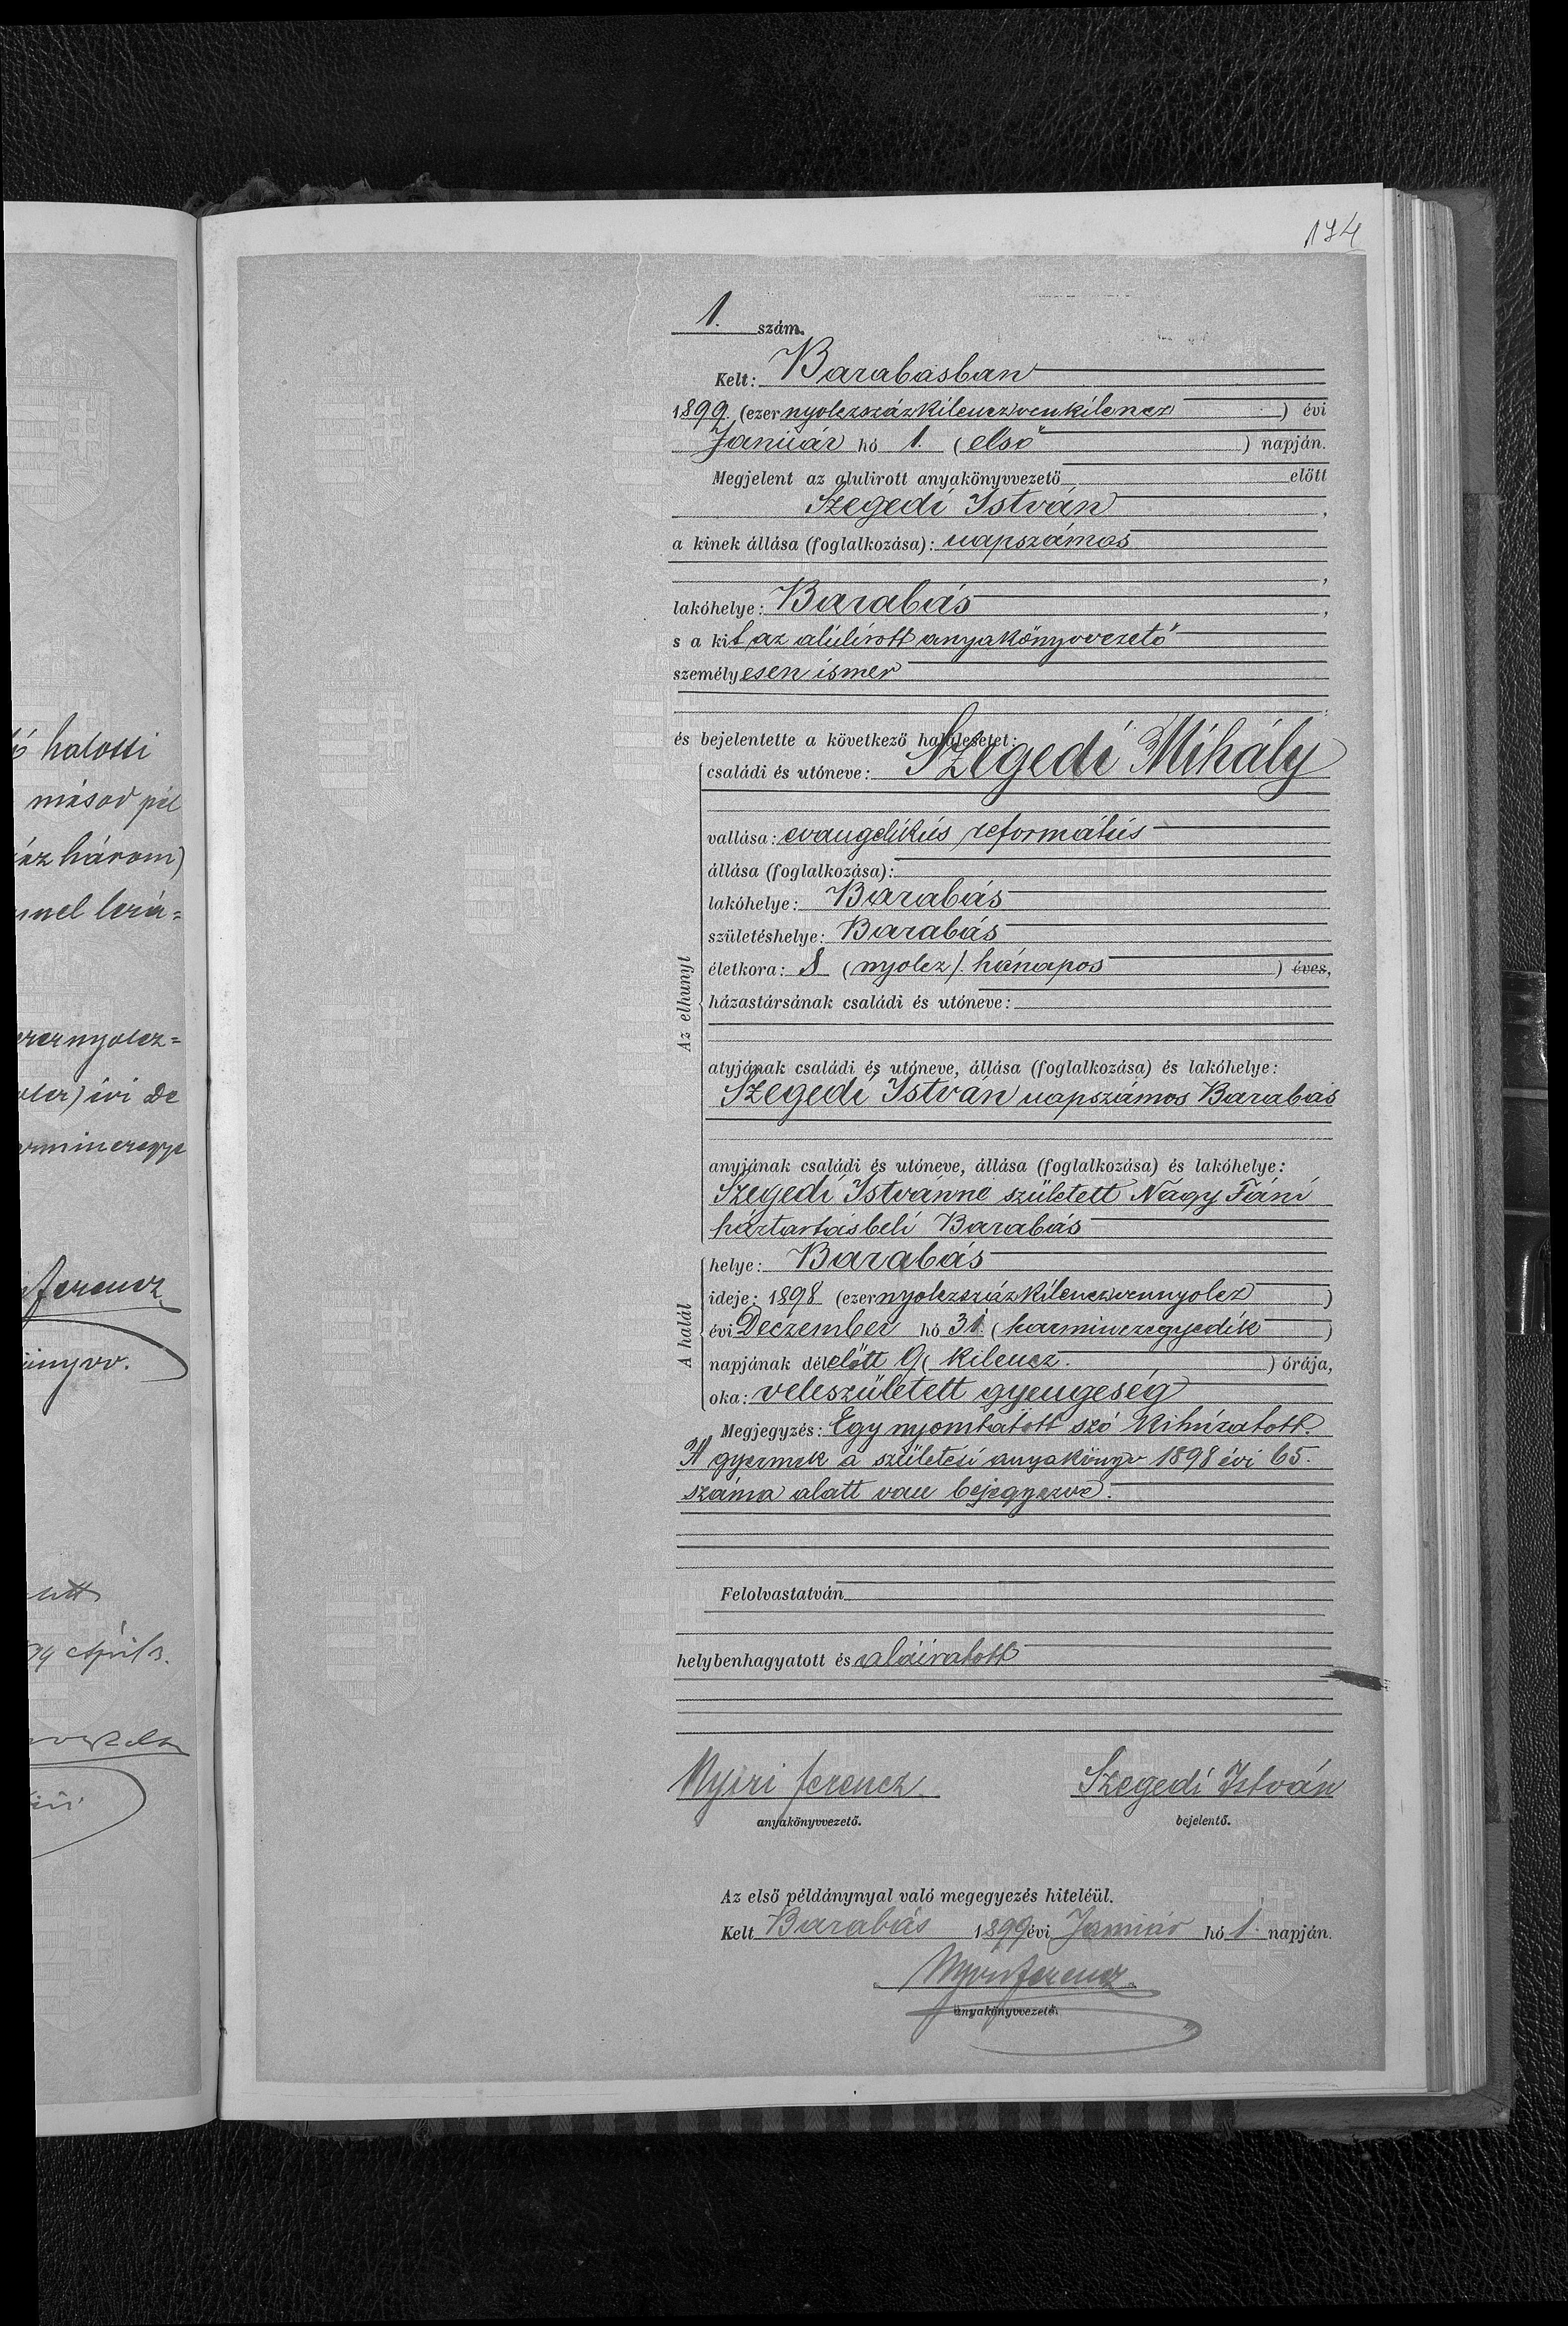 ó halotti
másod pél
áz három)
nnel lezá=
ezernyolcz=
évi De
harminczegye
ferencz
könyvv.
April 3.
174
1. szám.
Kelt: Barabásban
1899. (ezer nyolczszázkilenczvenkilencz) évi
Január hó 1. (első) napján.
Megjelent az alulirott anyakönyvvezető előtt
Szegedi István,
a kinek állása (foglalkozása): napszámos
,
lakóhelye: Barabás,
s a kit az alúlírott anyakönyvvezető
személyesen ismer
és bejelentette a következő halálesetet:
családi és utóneve: Szegedi Mihály
vallása: evangélikús református
állása (foglalkozása):
lakóhelye: Barabás
születéshelye: Barabás
életkora: 8 (nyolcz). hónapos ) éves,
Az elhunyt
házastársának családi és utóneve:
atyjának családi és utóneve, állása (foglalkozása) és lakóhelye:
Szegedi István napszámos Barabás
anyjának családi és utóneve, állása (foglalkozása) és lakóhelye:
Szegedi Istvánne született Nagy Fáni
háztartásbeli Barabás
helye: Barabás
ideje: 1898 (ezernyolczszázkilenczvennyolcz)
A halál
évi Deczember hó 31. (harminczegyedik)
napjának délelőtt 9 (kilencz.) órája,
oka: veleszületett gyengeség
Megjegyzés: Egy nyomtatott szó kihúzatott.
A gyermek a születési anyakönyv 1898 évi 65.
száma alatt van bejegyezve.
Felolvastatván
helybenhagyatott és aláíratott
Nyíri ferencz. Szegedi István
anyakönyvvezető. bejelentő.
Az első példánynyal való megegyezés hiteléül.
Kelt Barabás 1899 évi Január hó 1. napján.
Nyíri ferencz.
anyakönyvvezető.